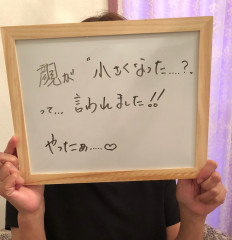 顔が〝小さくなった.....?〟
って... 言われました!!
やったぁ.....♡